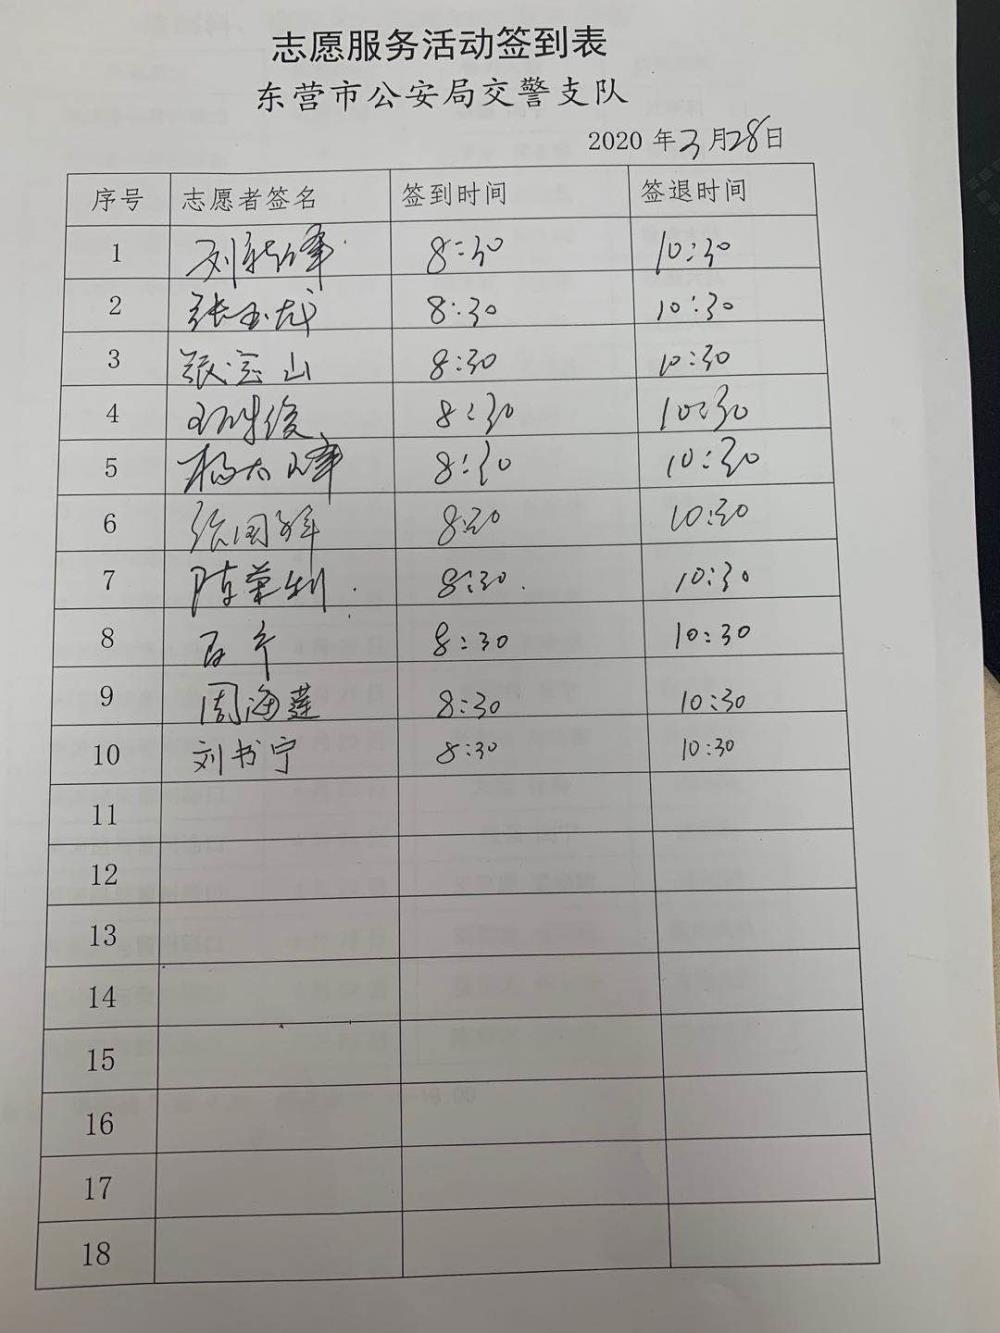 志愿服务活动签到表
东营市公安局交警支队
2020 年 3 月 28 日
序号 志愿者签名 签到时间 签退时间
1 刘 峰 8:30 10:30
2 张玉龙 8:30 10:30
3 张宝山 8:30 10:30
4 俊 8:30 10:30
5 杨 峰 8:30 10:30
6 张国 8:30 10:30
7 陈荣利 8:30 10:30
8 8:30 10:30
9 周海莲 8:30 10:30
10 刘书宁 8:30 10:30
11
12
13
14
15
16
17
18